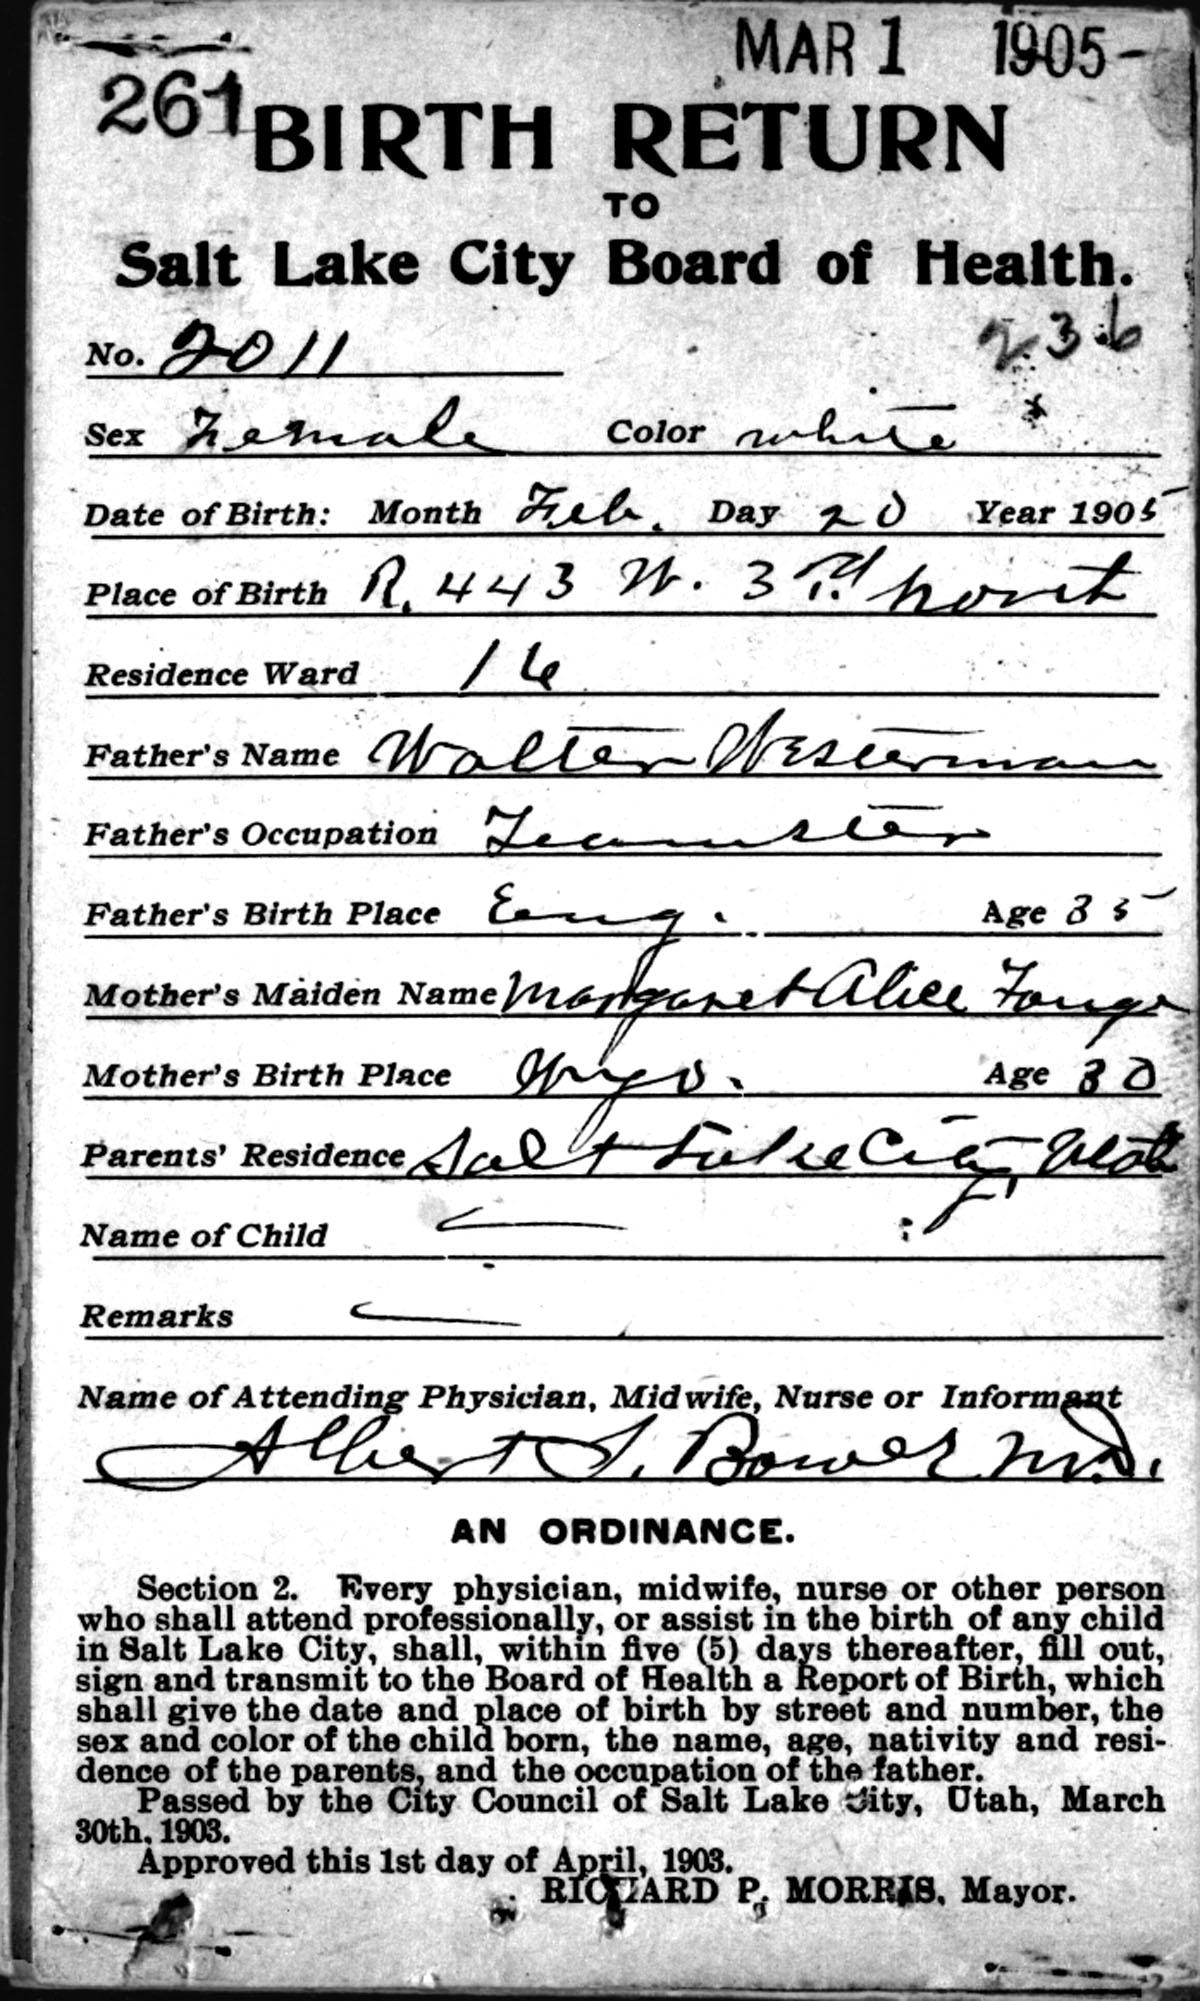 MAR 1 1905
261
BIRTH RETURN
TO
Salt Lake City Board of Health.
236
No. 2011
Sex Female Color white
Date of Birth: Month Feb. Day 20 Year 1905
Place of Birth R. 443 W. 3rd North
Residence Ward 16
Father's Name Walter Westerman
Father's Occupation Teamster
Father's Birth Place Eng. Age 35
Mother's Maiden Name Margaret Alice
Mother's Birth Place Wyo. Age 30
Parents' Residence Salt Lake City, Utah
Name of Child
Remarks
Name of Attending Physician, Midwife, Nurse or Informant
Albert S. Bower M.D.
AN ORDINANCE.
Section 2. Every physician, midwife, nurse or other person
who shall attend professionally, or assist in the birth of any child
in Salt Lake City, shall, within five (5) days thereafter, fill out,
sign and transmit to the Board of Health a Report of Birth, which
shall give the date and place of birth by street and number, the
sex and color of the child born, the name, age, nativity and resi-
dence of the parents, and the occupation of the father.
Passed by the City Council of Salt Lake City, Utah, March
30th, 1903.
Approved this 1st day of April, 1903.
RICHARD P. MORRIS, Mayor.